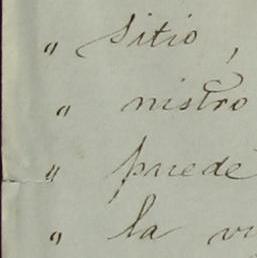 " sitio,
" nistro
" puede
" la vi